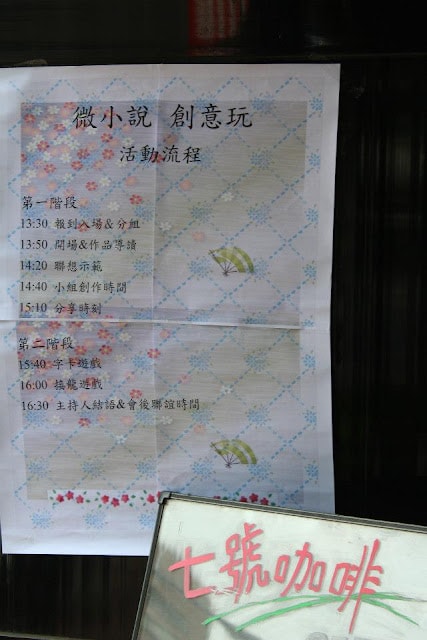 微小說 創意玩
活動流程
第一階段
13:30 報到入場&分組
13:50 開場&作品導讀
14:20 聯想示範
14:40 小組創作時間
15:10 分享時刻
第二階段
15:40 字卡遊戲
16:00 接龍遊戲
16:30 主持人結語&會後聯誼時間
七號咖啡